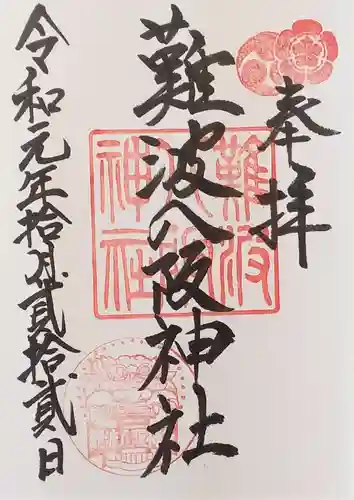 奉拝
難波八阪神社
令和元年拾月貳拾貳日
難波八阪神社